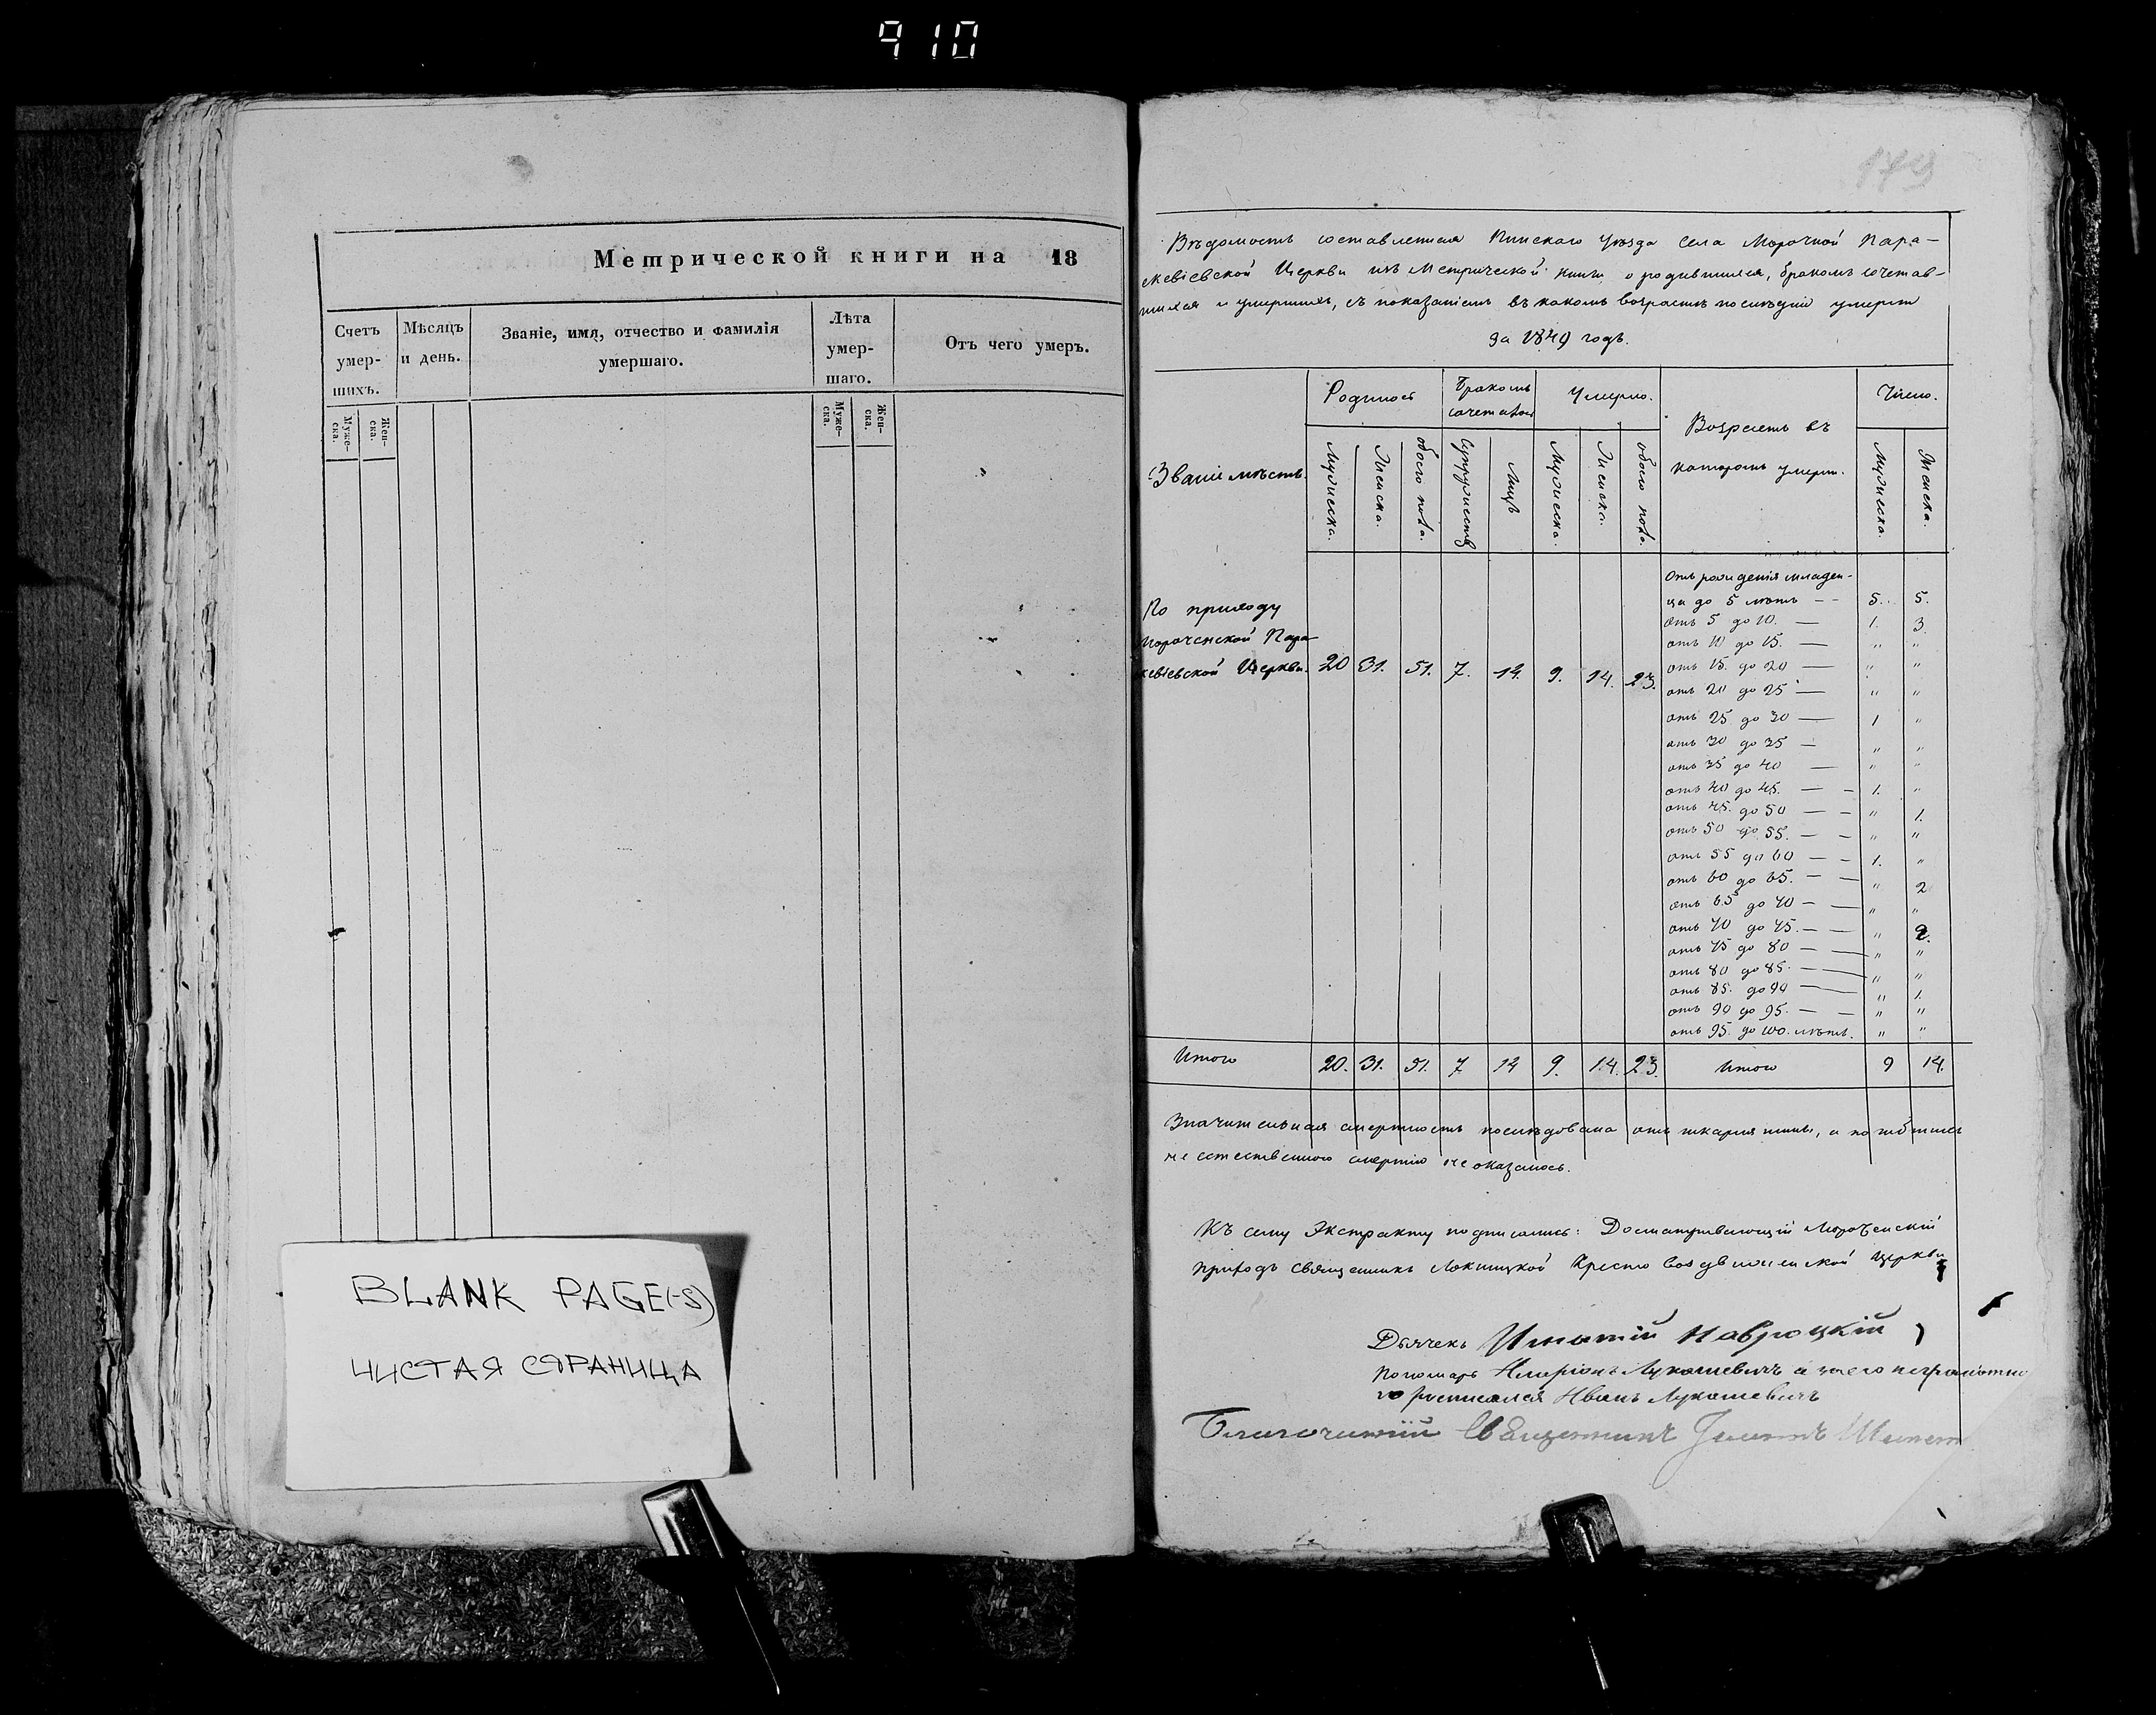 910
Метрической книги на 18
Счетъ умер- шихъ.
Мѣсяцъ и день.
Званіе, имя, отчество и фамилія умершаго.
Лѣта умер- шаго.
Отъ чего умеръ.
Муже- ска.
Жен- ска.
Муже- ска.
Жен- ска.
BLANK PAGE(-S)
ЧИСТАЯ СТРАНИЦА
179
Вѣдомость составленная Пинскаго уѣзда села Морочной Пара-
скевіевской Церкви изъ Метрической книги о родившихся, бракомъ сочетав-
шихся и умершихъ, съ показаніемъ въ какомъ возрастѣ послѣдніе умерли
за 1849 годъ.
Званіе мѣстъ.
Родилось
Бракомъ сочеталось
Умерло.
Возрастъ въ которомъ умерли.
Число.
Мужеска.
Женска.
обоего пола.
Супружествъ
Лицъ
Мужеска.
Женска.
обоего пола.
Мужеска.
Женска.
По приходу
Мороченской Пара-
скевіевской Церкви. 20 31. 51. 7. 14. 9. 14. 23.
Отъ рожденія младен-
ца до 5 лѣтъ — — 5. 5.
отъ 5 до 10. — 1. 3.
отъ 10 до 15. — " "
отъ 15. до 20 — " "
отъ 20 до 25 — " "
отъ 25 до 30 — 1 "
отъ 30 до 35 — " "
отъ 35 до 40 — " "
отъ 40 до 45. — — 1. "
отъ 45. до 50 — — " 1.
отъ 50 до 55. — — " "
отъ 55 до 60 — — 1. "
отъ 60 до 65. — — " 2
отъ 65 до 70 — — " "
отъ 70 до 75. — — " 2.
отъ 75 до 80 — — " "
отъ 80 до 85. — — " "
отъ 85. до 90 — — " 1.
отъ 90 до 95. — — " "
отъ 95. до 100. лѣтъ. " "
Итого 20. 31. 51. 7 14 9. 14. 23. Итого 9 14.
Значительная смертность послѣдовала отъ шкарлятины, а погибшихъ
не естественною смертію не оказалось.
Къ сему Экстракту подписались: Досматривающій Мороченскій
приходъ священникъ Локницкой Кресто воздвиженской церкви
Дьячекъ Игнатій Навроцкій
Пономарь Иларіонъ Лукашевичъ а за его неграмотно
го росписался Иванъ Лукашевичъ
Благочинній Священникъ